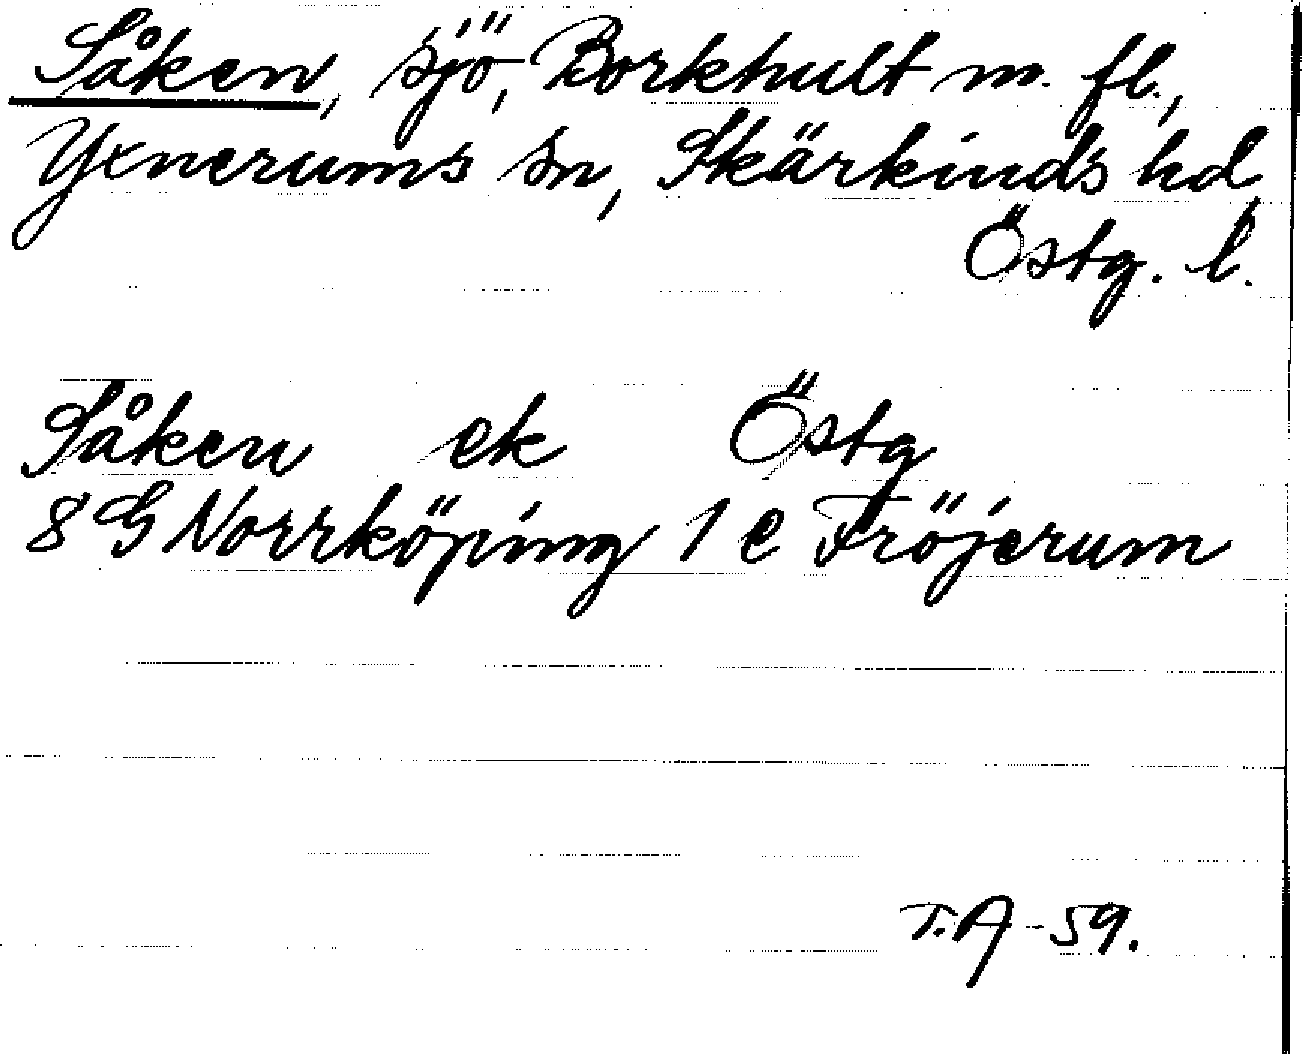 Såken, sjö, Borkhult m. fl.,
Yxnerums sn, Skärkinds hd,
Östg. l.
Såken ek Östg
8 G Norrköping 1 e Fröjerum
T.A -59.